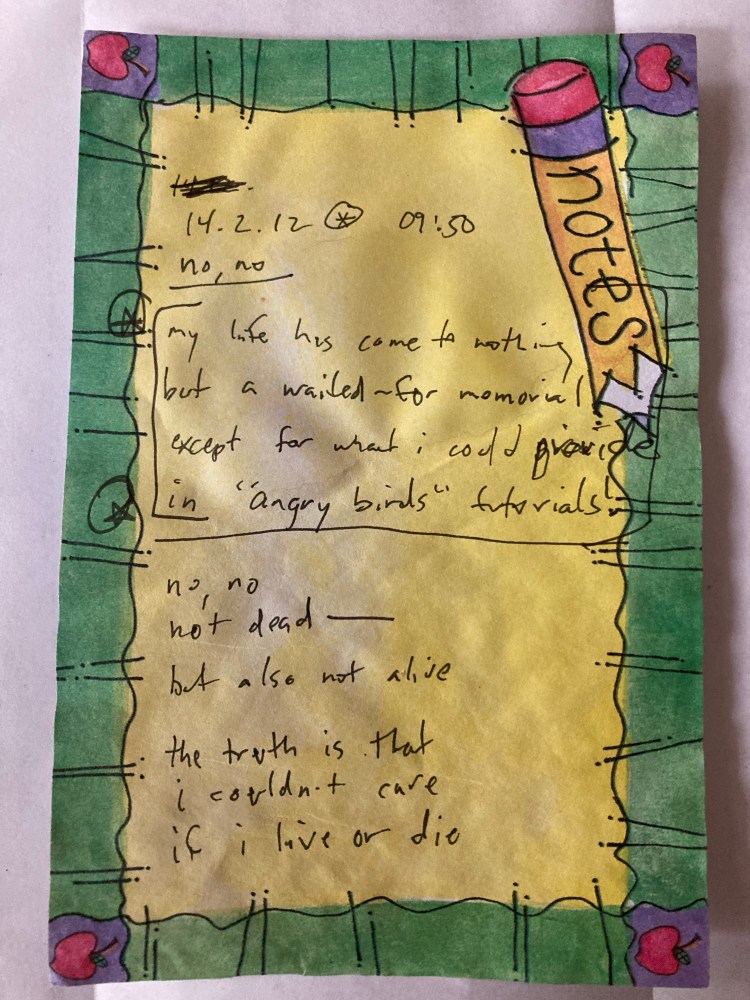 notes
14.2.12 09:50
no, no
my life has come to nothing
but a waited-for memorial
except for what i could provide
in "angry birds" tutorials!
no, no
not dead —
but also not alive
the truth is that
i couldn't care
if i live or die